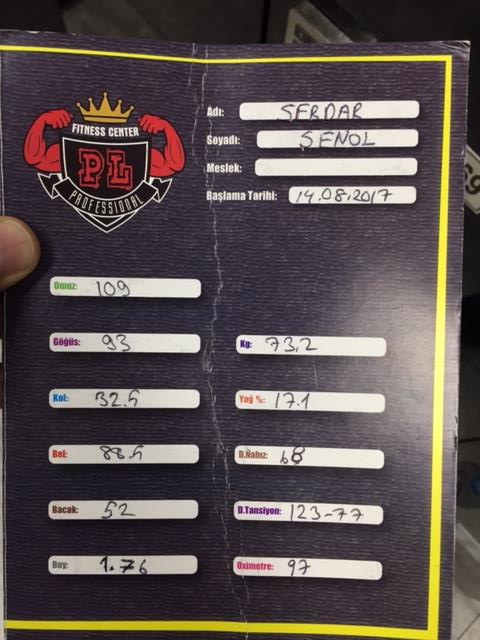 FITNESS CENTER
PL
PROFESSIONAL
Adı: SERDAR
Soyadı: ŞENOL
Meslek:
Başlama Tarihi: 14.08.2017
Omuz: 109
Göğüs: 93
Kg: 73,2
Kol: 32.5
Yağ %: 17.1
Bel: 88.5
D.Nabız: 68
Bacak: 52
D.Tansiyon: 123-77
Boy: 1.76
Oximetre: 97